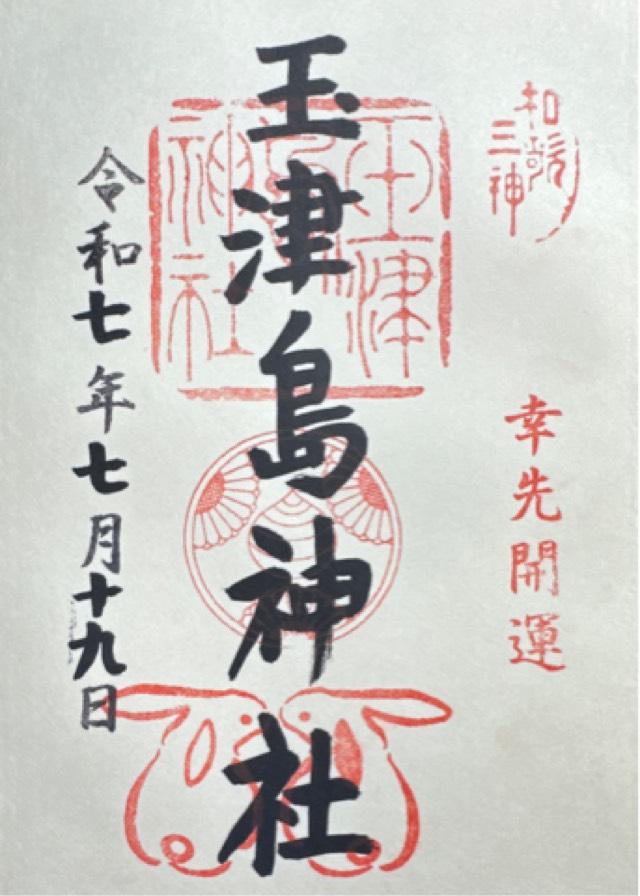 和歌
三神
幸先開運
玉津島神社
玉津
島
神社
令和七年七月十九日